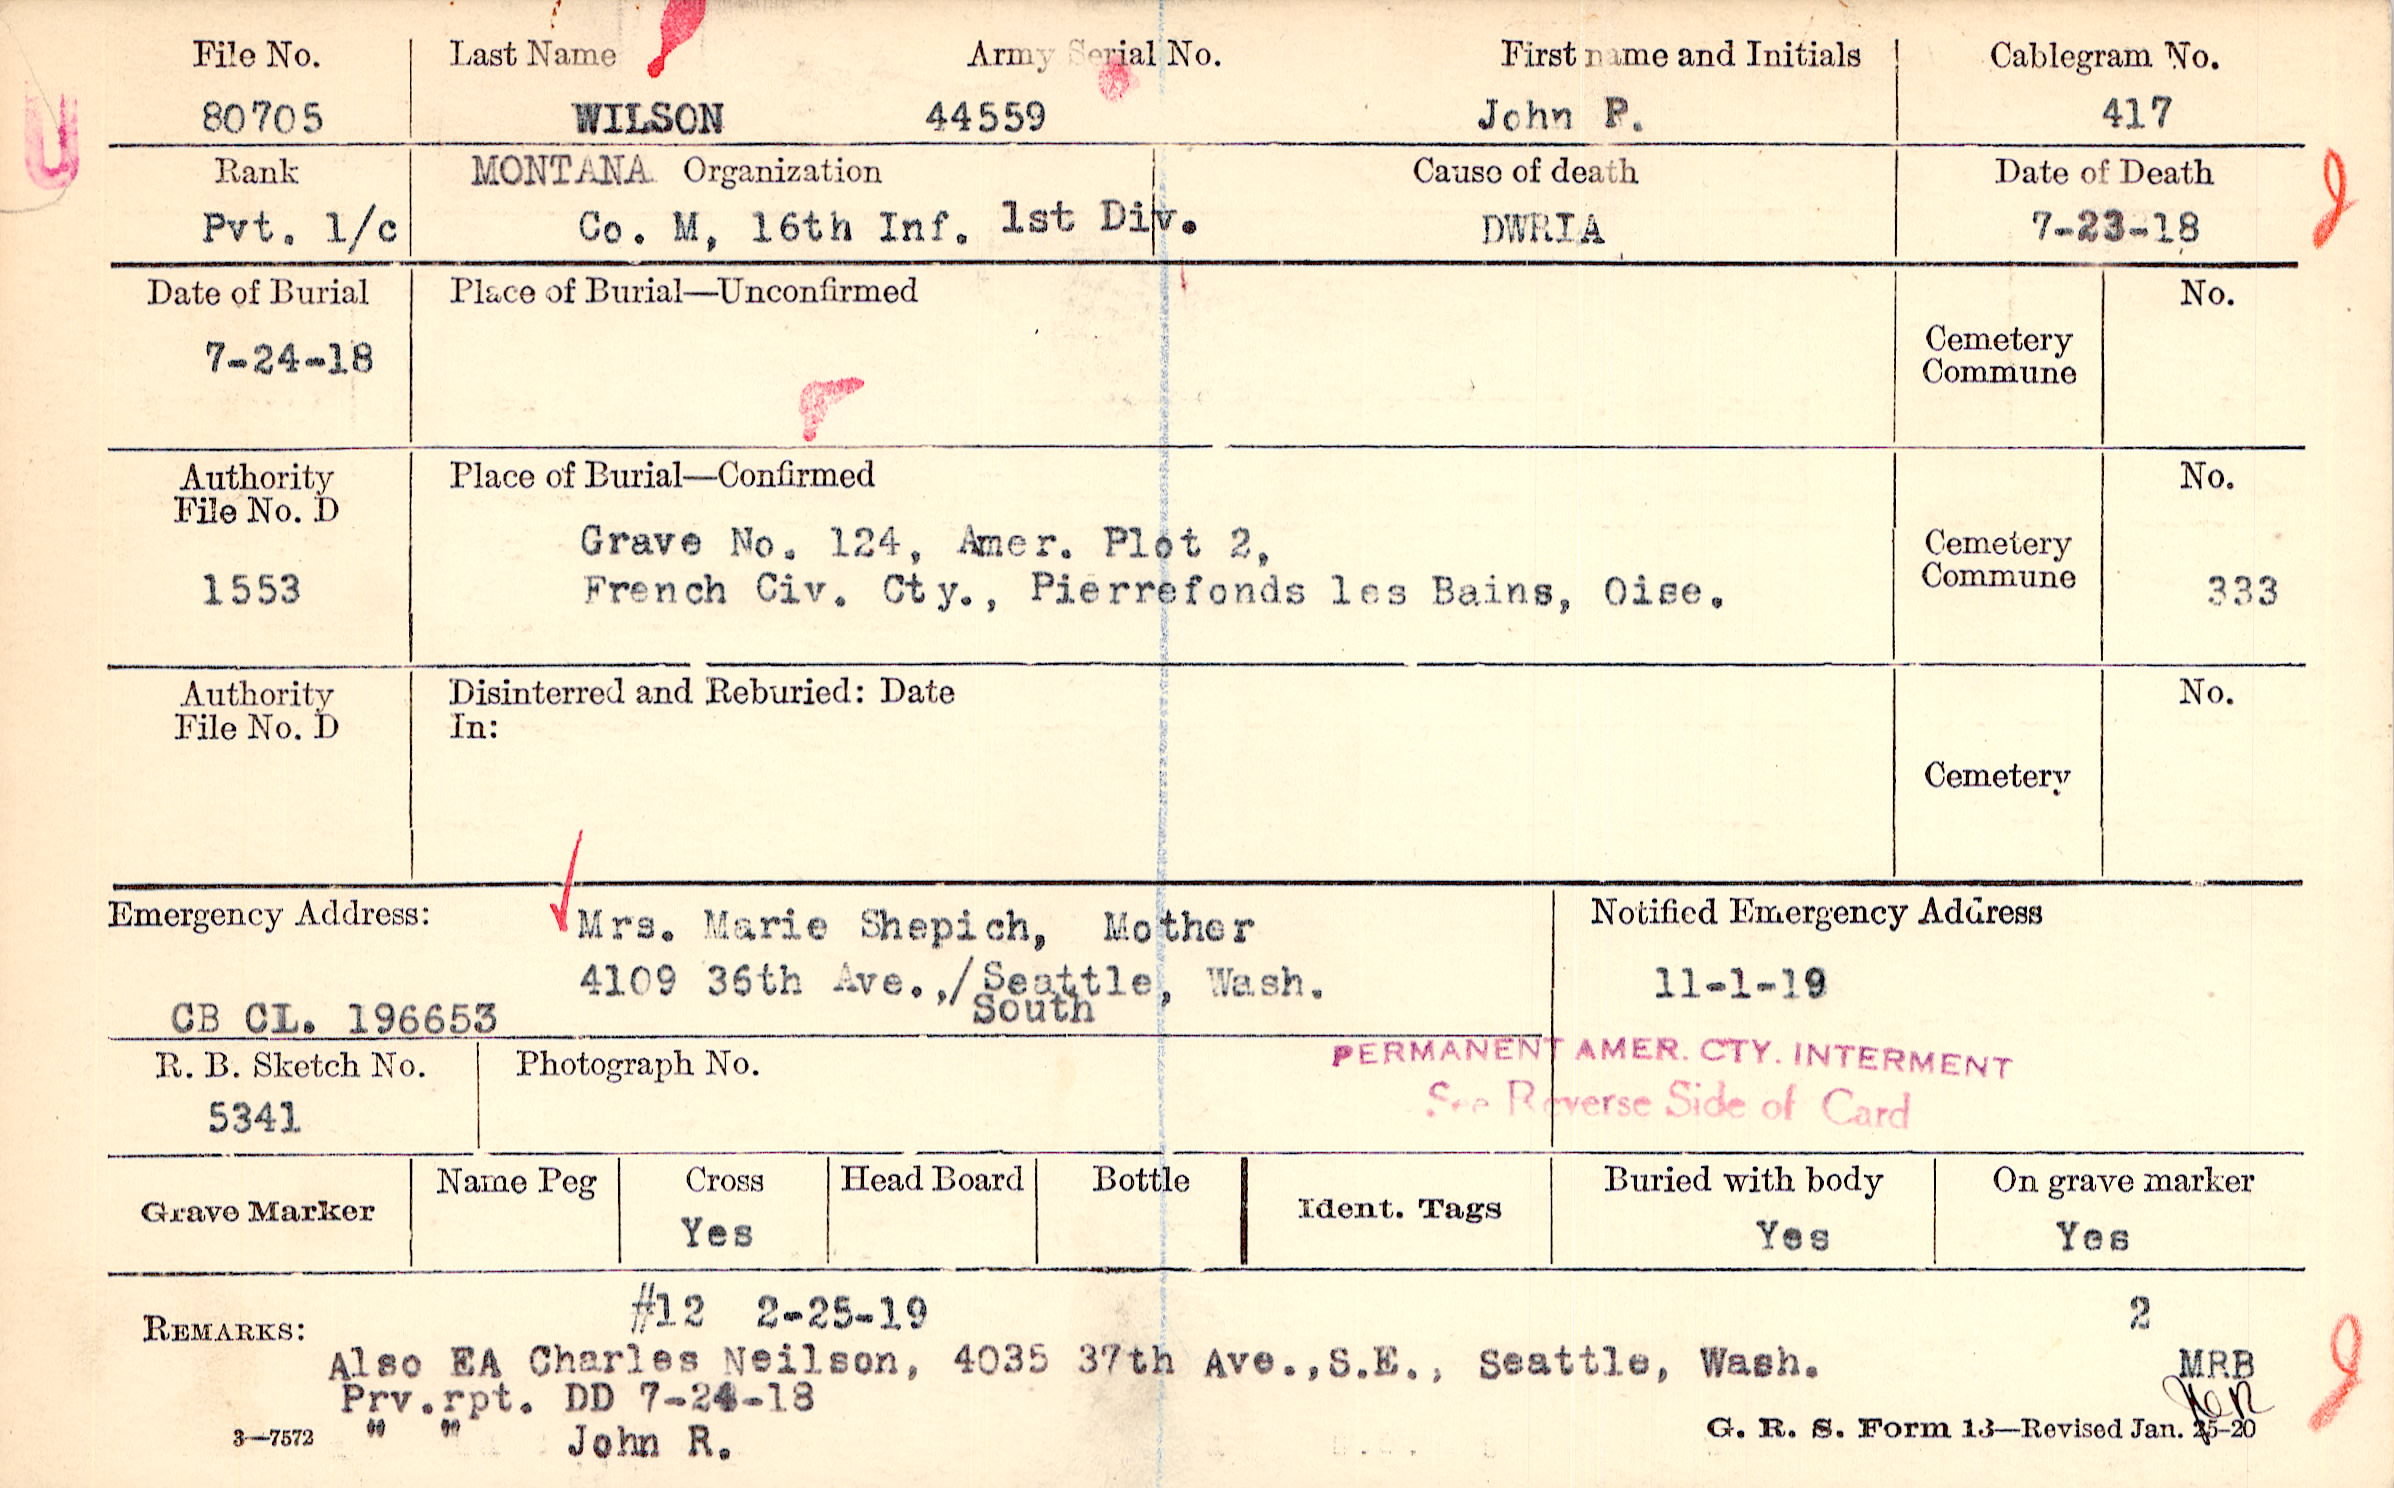 File No. Last Name Army Serial No. First name and Initials Cablegram No.
80705 WILSON 44559 John P. 417
Rank MONTANA Organization Cause of death Date of Death
Pvt. 1/c Co. M, 16th Inf. 1st Div. DWRIA 7-23-18
Date of Burial Place of Burial—Unconfirmed No.
7-24-18 Cemetery
Commune
Authority Place of Burial—Confirmed No.
File No. D
Grave No. 124, Amer. Plot 2, Cemetery
1553 French Civ. Cty., Pierrefonds les Bains, Oise. Commune 333
Authority Disinterred and Reburied: Date No.
File No. D In:
Cemetery
Emergency Address: Mrs. Marie Shepich, Mother Notified Emergency Address
4109 36th Ave.,/Seattle, Wash. 11-1-19
South
CB CL. 196653
R. B. Sketch No. Photograph No. PERMANENT AMER. CTY. INTERMENT
5341 See Reverse Side of Card
Grave Marker Name Peg Cross Head Board Bottle Ident. Tags Buried with body On grave marker
Yes Yes Yes
REMARKS: #12 2-25-19 2
Also EA Charles Neilson, 4035 37th Ave.,S.E., Seattle, Wash. MRB
Prv.rpt. DD 7-24-18
3—7572 " " John R. G. R. S. Form 13—Revised Jan. 25-20